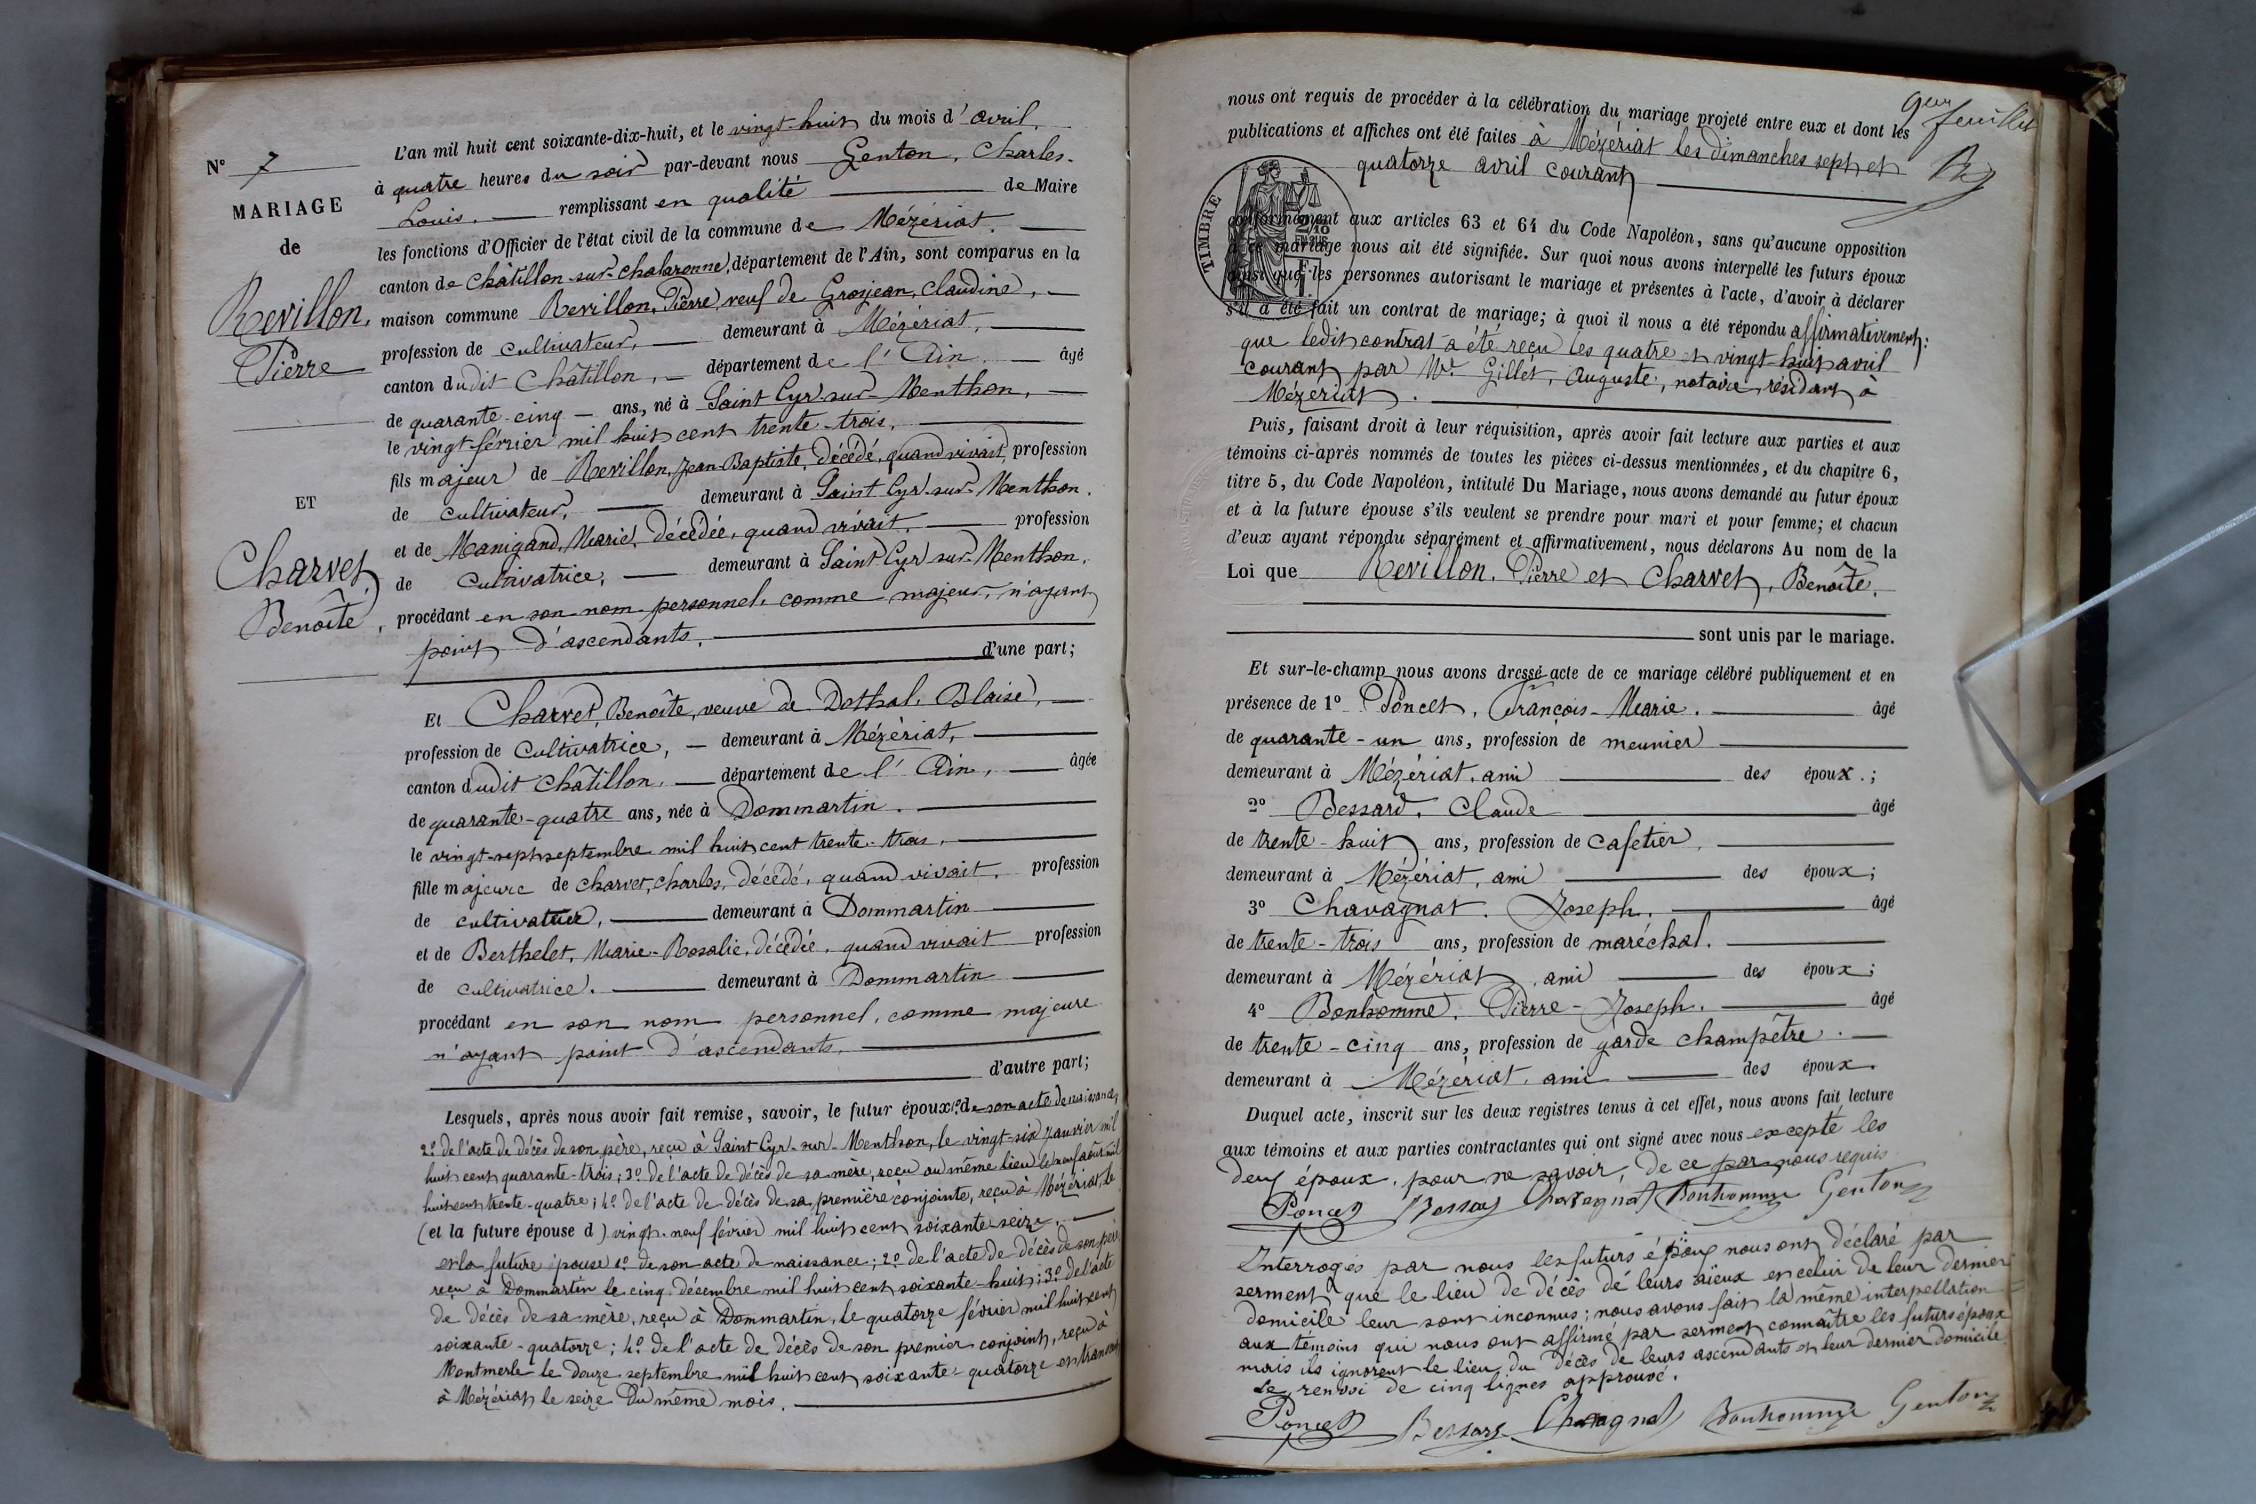 N° 7
MARIAGE
de
Revillon,
Pierre
ET
Charvet,
Benoîte,
L'an mil huit cent soixante-dix-huit, et le vingt-huit du mois d'avril,
à quatre heures du soir par-devant nous Genton, Charles-
Louis, remplissant en qualité de Maire
les fonctions d'Officier de l'état civil de la commune de Mézériat,
canton de Châtillon-sur-Chalaronne, département de l'Ain, sont comparus en la
maison commune Revillon, Pierre, veuf de Grosjean, Claudine,
profession de cultivateur, demeurant à Mézériat,
canton dudit Châtillon, département de l'Ain, âgé
de quarante-cinq ans, né à Saint Cyr-sur-Menthon,
le vingt février mil huit cent trente-trois,
fils majeur de Revillon, Jean-Baptiste, décédé, quand vivait, profession
de cultivateur, demeurant à Saint Cyr-sur-Menthon.
et de Manigand, Marie, décédée, quand vivait, profession
de cultivatrice, demeurant à Saint Cyr sur Menthon,
procédant en son nom personnel, comme majeur, n'ayant
point d'ascendants, d'une part;
Et Charvet, Benoîte, veuve de Dothal, Blaise,
profession de cultivatrice, demeurant à Mézériat,
canton dudit Châtillon, département de l'Ain, âgée
de quarante-quatre ans, née à Dommartin.
le vingt-sept septembre mil huit cent trente-trois,
fille majeure de Charvet, Charles, décédé, quand vivait, profession
de cultivateur, demeurant à Dommartin
et de Berthelet, Marie-Rosalie, décédée, quand vivait profession
de cultivatrice. demeurant à Dommartin
procédant en son nom personnel, comme majeure
n'ayant point d'ascendants,
d'autre part;
Lesquels, après nous avoir fait remise, savoir, le futur époux 1° de son acte de naissance,
2° de l'acte de décès de son père, reçu à Saint Cyr-sur-Menthon, le vingt-six janvier mil
huit cent quarante-trois; 3° de l'acte de décès de sa mère, reçu au même lieu le neuf août mil
huit cent trente-quatre; 4° de l'acte de décès de sa première conjointe, reçu à Mézériat, le
(et la future épouse d ) vingt-neuf février mil huit cent soixante-seize,
et la future épouse 1° de son acte de naissance; 2° de l'acte de décès de son père
reçu à Dommartin le cinq décembre mil huit cent soixante-huit; 3° de l'acte
de décès de sa mère, reçu à Dommartin, le quatorze février mil huit cent
soixante-quatorze; 4° de l'acte de décès de son premier conjoint, reçu à
Montmerle le douze septembre mil huit cent soixante-quatorze et transcrit
à Mézériat le seize du même mois.
9eme feuillet
nous ont requis de procéder à la célébration du mariage projeté entre eux et dont les
publications et affiches ont été faites à Mézériat les dimanches sept et
quatorze avril courant
TIMBRE
2/10
EN SUS
conformément aux articles 63 et 64 du Code Napoléon, sans qu'aucune opposition
à ce mariage nous ait été signifiée. Sur quoi nous avons interpellé les futurs époux
ainsi que les personnes autorisant le mariage et présentes à l'acte, d'avoir à déclarer
s'il a été fait un contrat de mariage; à quoi il nous a été répondu affirmativement:
que ledit contrat a été reçu les quatre et vingt-huit avril
courant par Me Gillet, Auguste, notaire, résidant à
Mézériat.
Puis, faisant droit à leur réquisition, après avoir fait lecture aux parties et aux
témoins ci-après nommés de toutes les pièces ci-dessus mentionnées, et du chapitre 6,
titre 5, du Code Napoléon, intitulé Du Mariage, nous avons demandé au futur époux
et à la future épouse s'ils veulent se prendre pour mari et pour femme; et chacun
d'eux ayant répondu séparément et affirmativement, nous déclarons Au nom de la
Loi que Revillon. Pierre et Charvet, Benoîte,
sont unis par le mariage.
Et sur-le-champ nous avons dressé acte de ce mariage célébré publiquement et en
présence de 1° Poncet, François-Marie. âgé
de quarante-un ans, profession de meunier
demeurant à Mézériat, ami des époux.;
2° Bessard, Claude âgé
de trente-huit ans, profession de cafetier,
demeurant à Mézériat, ami des époux;
3° Chavagnat. Joseph. âgé
de trente-trois ans, profession de maréchal.
demeurant à Mézériat, ami des époux;
4° Bonhomme. Pierre-Joseph. âgé
de trente-cinq ans, profession de garde champêtre.
demeurant à Mézériat, ami des époux
Duquel acte, inscrit sur les deux registres tenus à cet effet, nous avons fait lecture
aux témoins et aux parties contractantes qui ont signé avec nous excepté les
deux époux, pour ne savoir, de ce par nous requis
Poncet Bessard Chavagnat Bonhomme Genton
Interrogés par nous les futurs époux nous ont déclaré par
serment que le lieu de décès de leurs aïeux et celui de leur dernier
domicile leur sont inconnus; nous avons fait la même interpellation
aux témoins qui nous ont affirmé par serment connaître les futurs époux
mais ils ignorent le lieu du décès de leurs ascendants et leur dernier domicile
Le renvoi de cinq lignes approuvé.
Poncet Bessard Chavagnat Bonhomme Genton